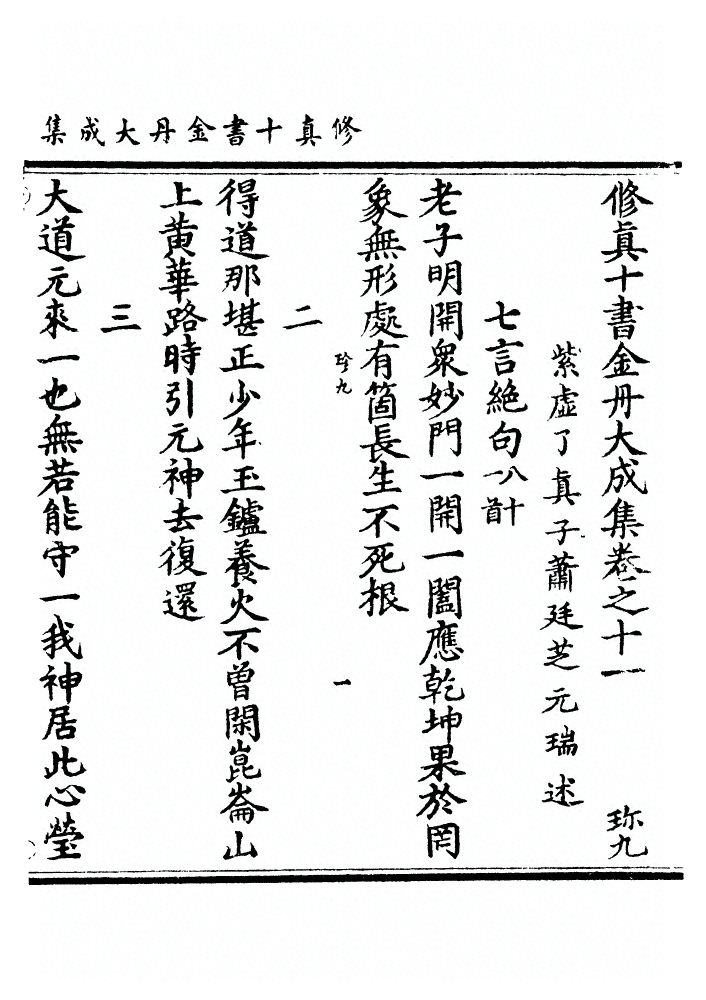 修真十書金丹大成集
修眞十書金丹大成集卷之十一 珎九
紫虛了眞子蕭廷芝元瑞述
七言絶句八十一首
老子明開衆妙門一開一闔應乾坤果於罔
象無形處有箇長生不死根
珍九 一
二
得道那堪正少年玉鑪養火不曾閑崑崙山
上黄華路時引元神去復還
三
大道元來一也無若能守一我神居此心瑩